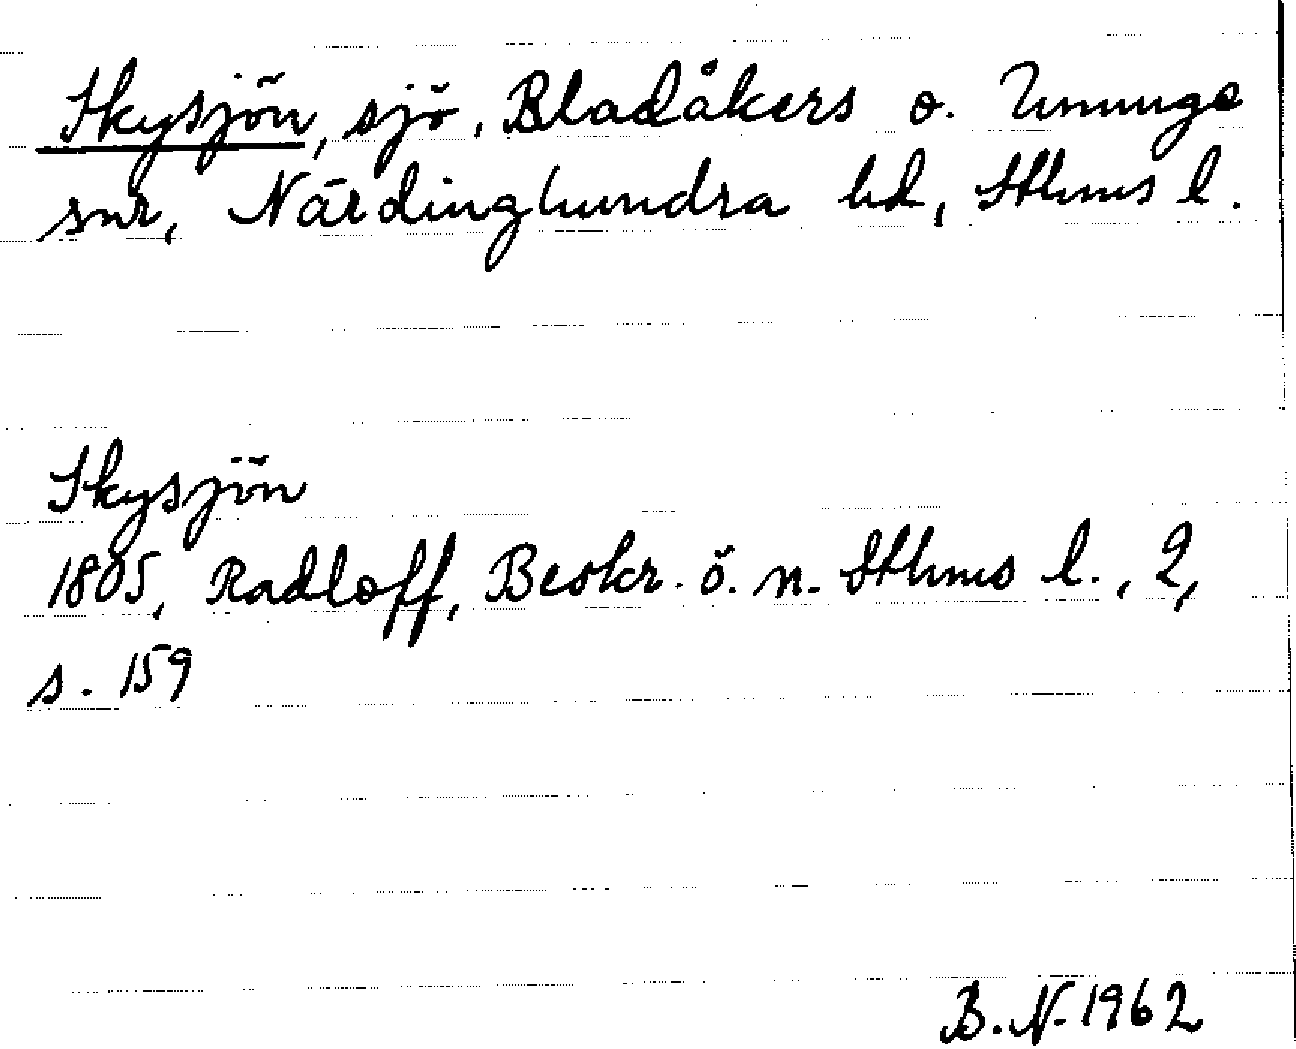 Skysjön, sjö, Bladåkers o. Ununge
snr, Närdinghundra hd, Sthms l.
Skysjön
1805, Radloff, Beskr. ö. n. Sthms l., 2,
s. 159
B.N. 1962